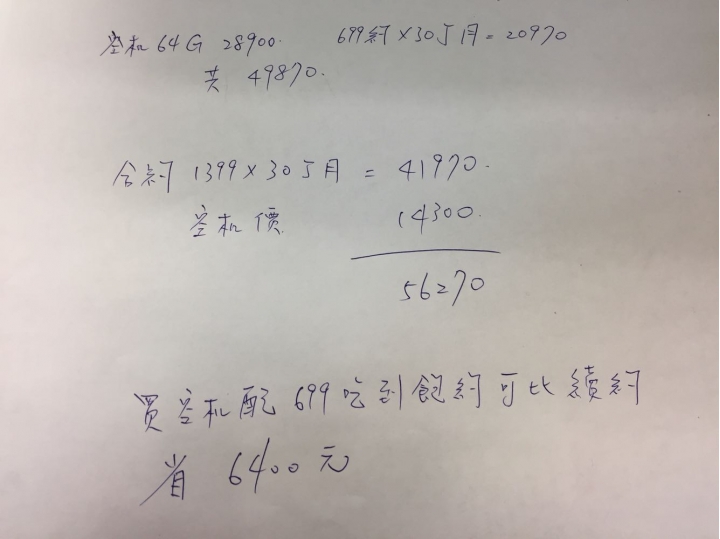 空机64G 28900. 699約×30个月=20970
共 49870.
合約 1399×30个月 = 41970.
空机價 14300.
56270
買空机配699吃到飽約可比續約
省 6400元